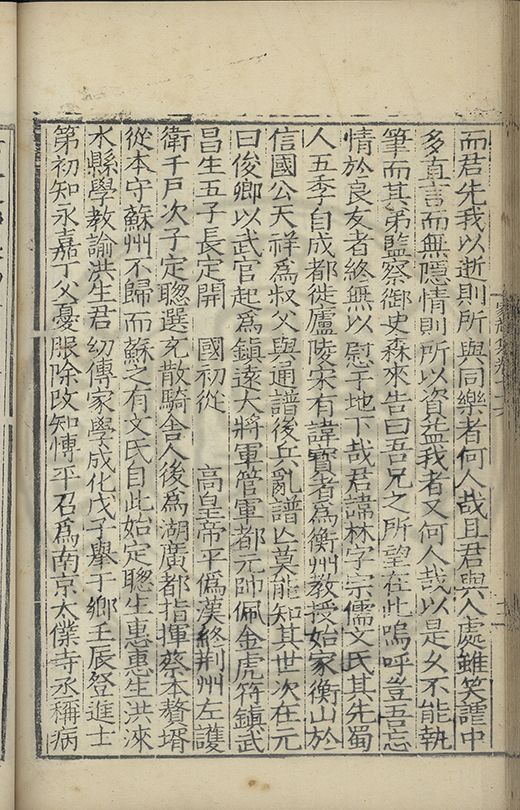 而君先我以逝則所與同樂者何人哉且君與人處雖笑謔中
多直言而無隱情則所以資益我者又何人哉以是久不能執
筆而其弟監察御史森來告曰吾兄之所望在此嗚呼豈吾忘
情於良友者終無以慰于地下哉君諱林字宗儒文氏其先蜀
人五季自成都徙廬陵宋有諱寶者爲衡州教授始家衡山於
信國公天祥爲叔父與通譜後兵亂譜亡莫能知其世次在元
曰俊卿以武官起爲鎮遠大將軍管軍都元帥佩金虎符鎮武
昌生五子長定開 國初從 高皇帝平僞漢終荆州左護
衛千戸次子定聰選充散騎舍人後爲湖廣都指揮蔡本贅壻
從本守蘇州不歸而蘇之有文氏自此始定聰生惠惠生洪淶
水縣學教諭洪生君幼傳家學成化戊子舉于鄉壬辰登進士
第初知永嘉丁父憂服除改知愽平召爲南京太僕寺丞稱病